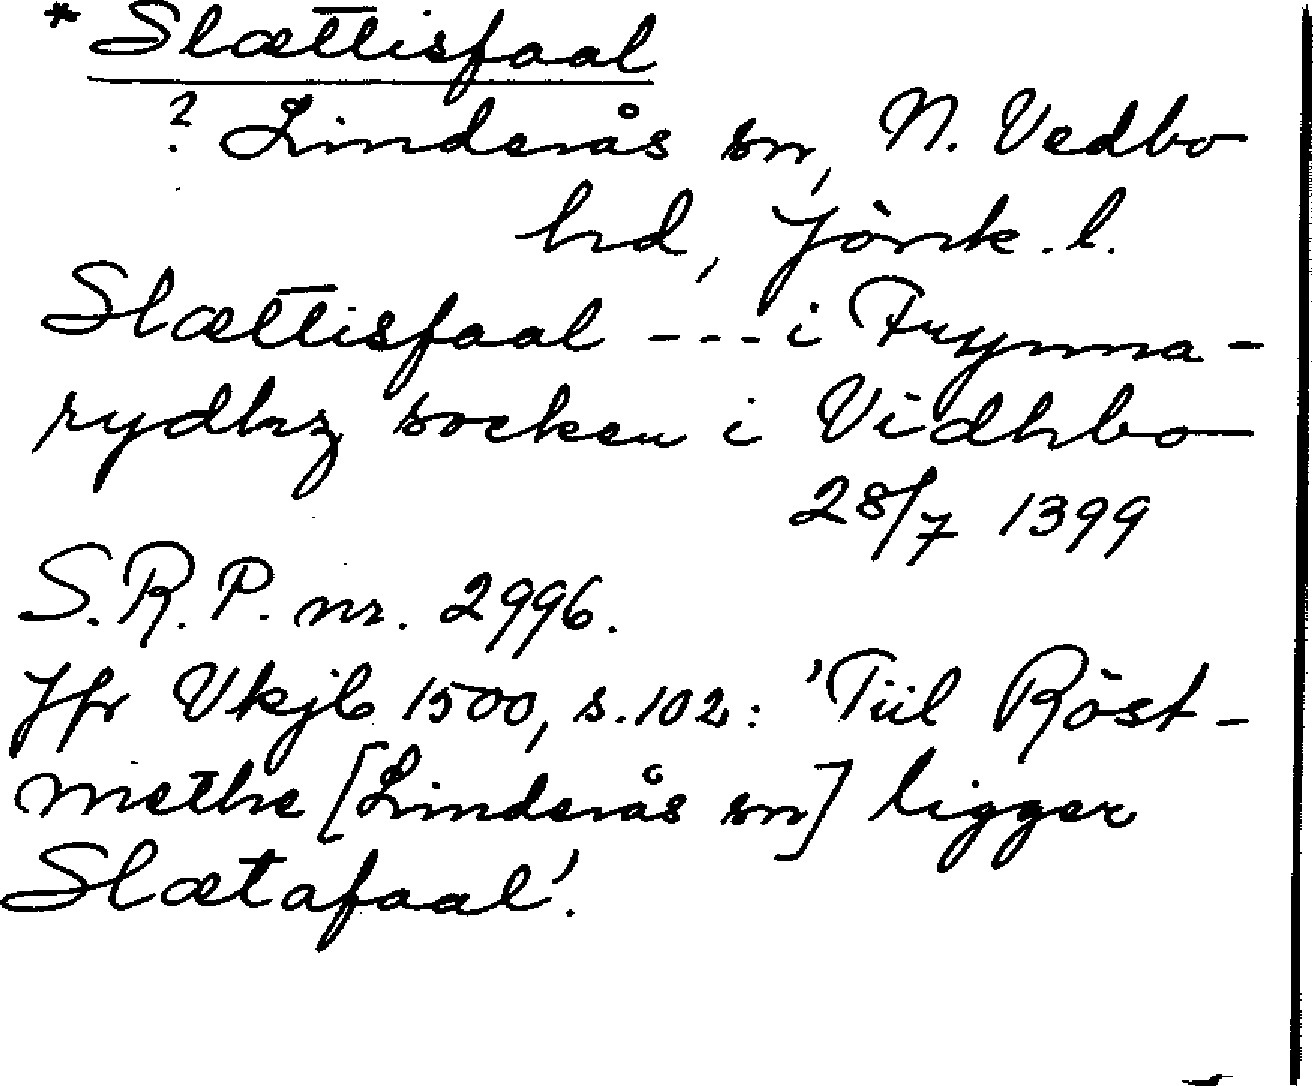 * Slættisfaal
? Linderås sn, N. Vedbo
hd, Jönk. l.
Slættisfaal --- i Frynna-
rydhz socken i Vidhbo
28/7 1399
S.R.P. nr. 2996.
Jfr Vkjb 1500, s. 102: 'Tiil Röst-
methe [Linderås sn] ligger
Slætafaal'.